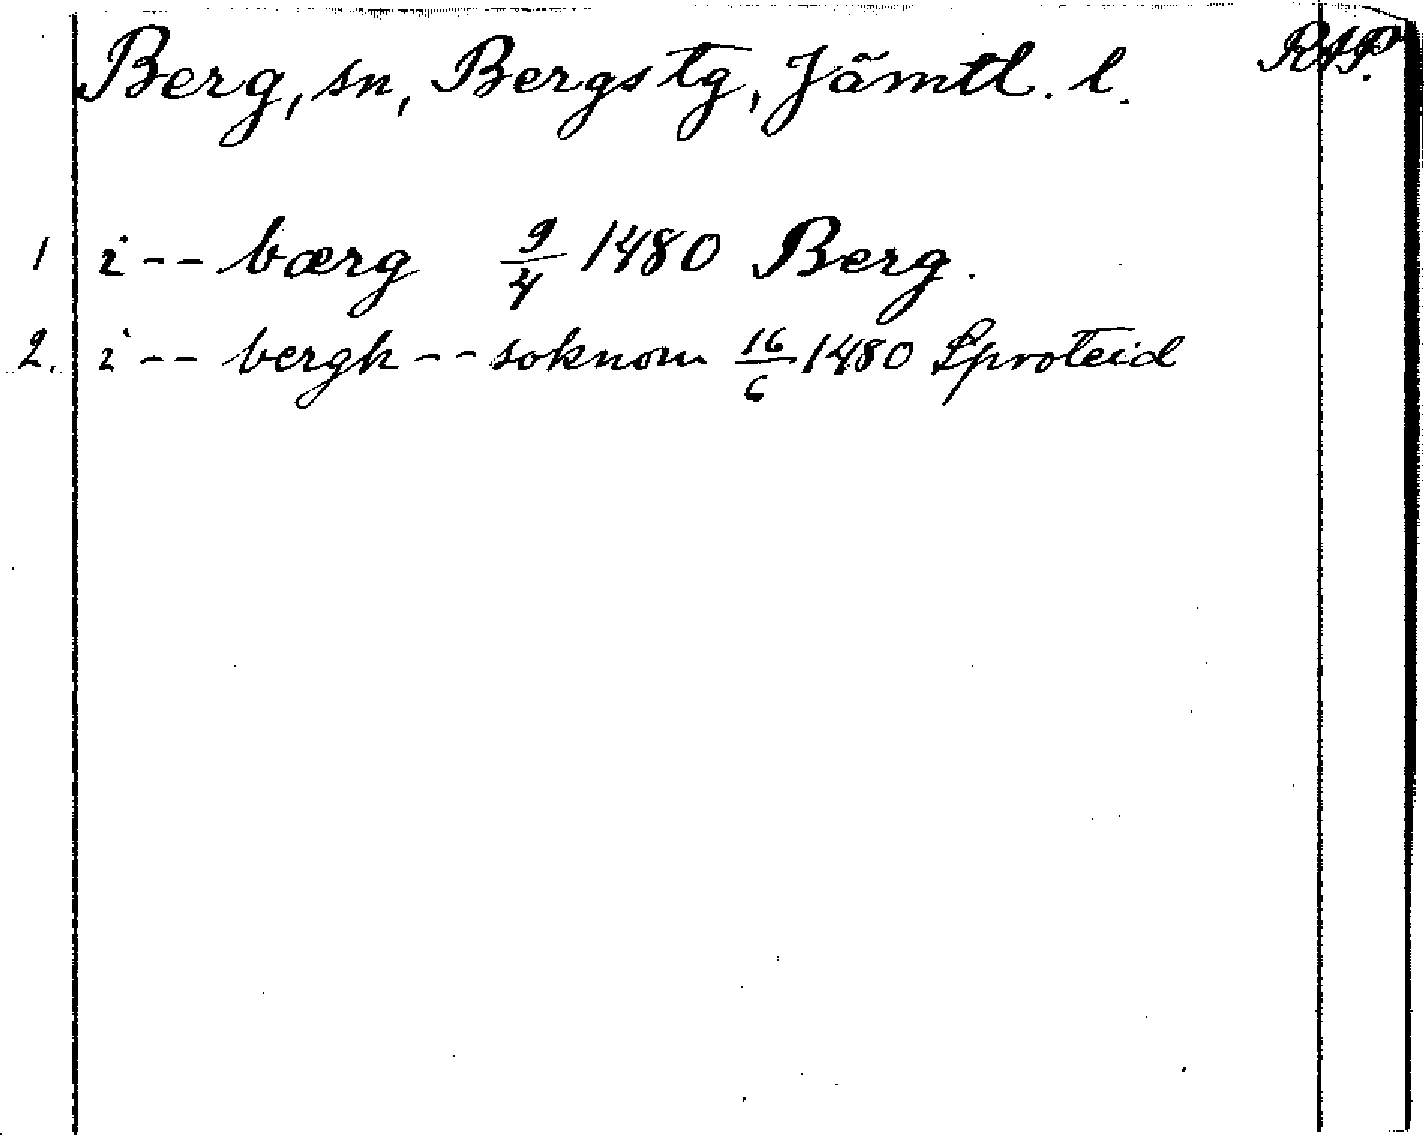 Berg, sn, Bergs tg, Jämtl. l. RAP.
1 i -- bærg 9/4 1480 Berg.
2. i -- bergh -- soknom 16/6 1480 Sproteid